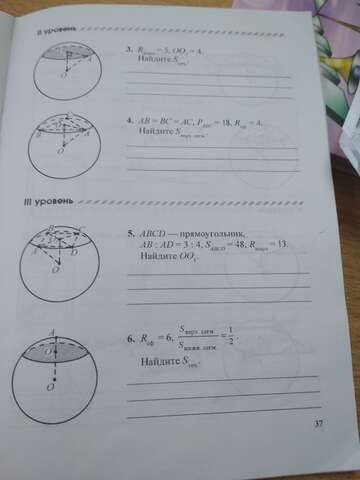 II уровень
3. Rшара = 5, OO₁ = 4.
Найдите Sсеч.
O
A
4. AB = BC = AC, PABC = 18, Rсф = 4.
Найдите Sверх. сегм.
B
A
O
III уровень
5. ABCD — прямоугольник,
AB : AD = 3 : 4, SABCD = 48, Rшара = 13.
Найдите OO₁.
B
C
A
D
O
6. Rсф = 6, Sверх. сегм. / Sнижн. сегм. = 1/2.
Найдите Sсеч.
A
O₁
O
37